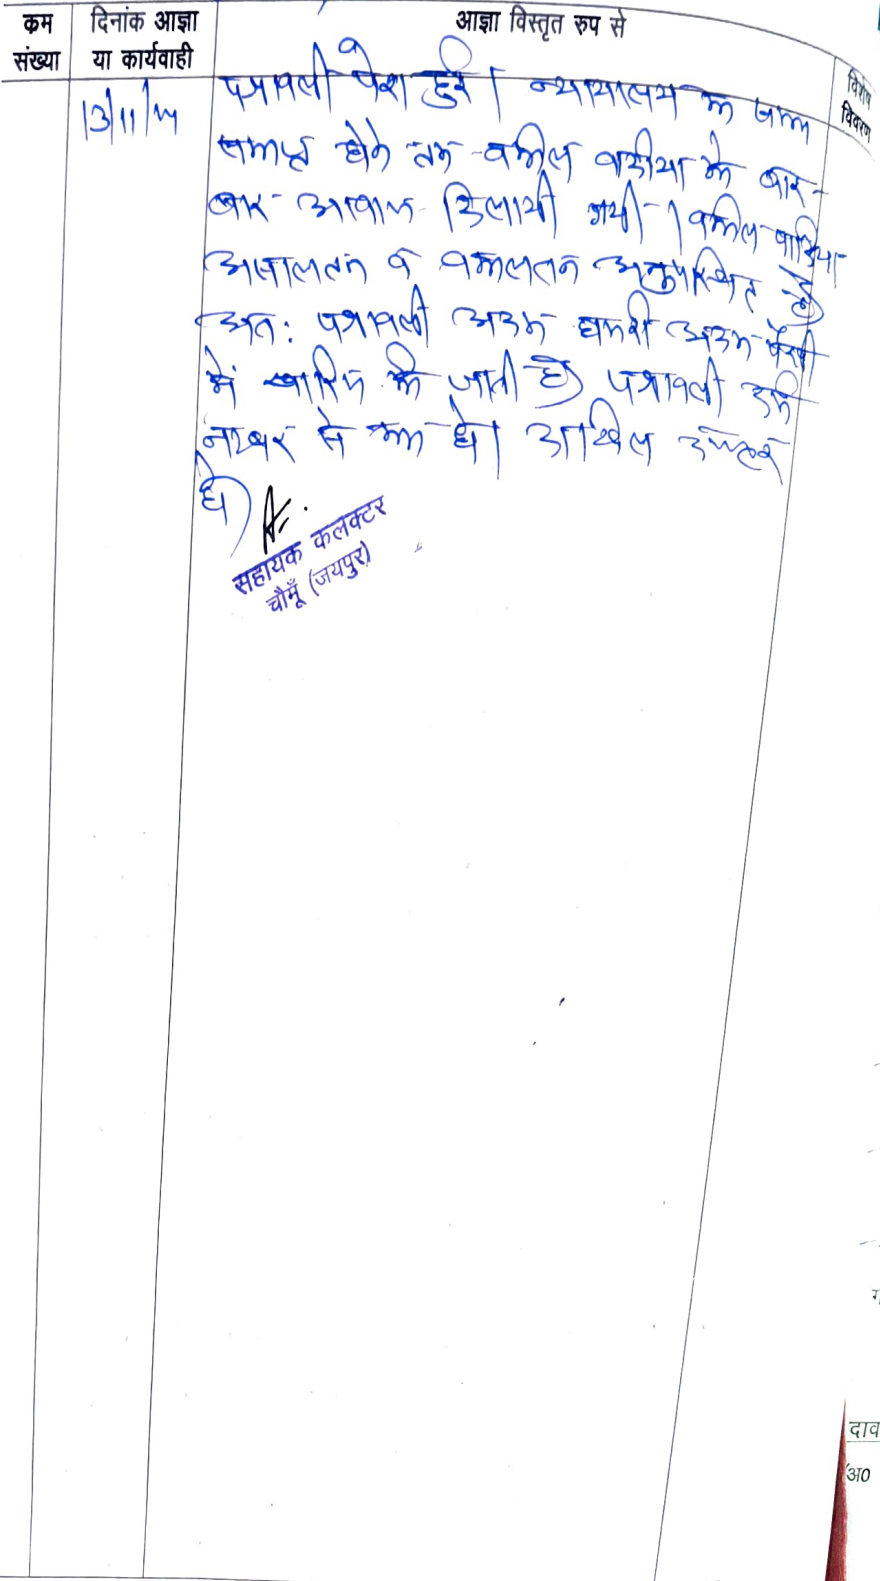 कम संख्या
दिनांक आज्ञा या कार्यवाही
आज्ञा विस्तृत रुप से
विशेष विवरण
13/11/
पत्रावली पेश हुई। न्यायालय का
समाप्त होने तक वकील वादीया को बार-
बार आवाज दिलायी गयी। वकील वादिया
असालतन व वकालतन अनुपस्थित है
अतः पत्रावली अदम हाजरी अदम पैरवी
में खारिज की जाती है। पत्रावली
नम्बर से कम हो। दाखिल दफ्तर
हो।
सहायक कलक्टर
चौमूँ (जयपुर)
दाव
अ0